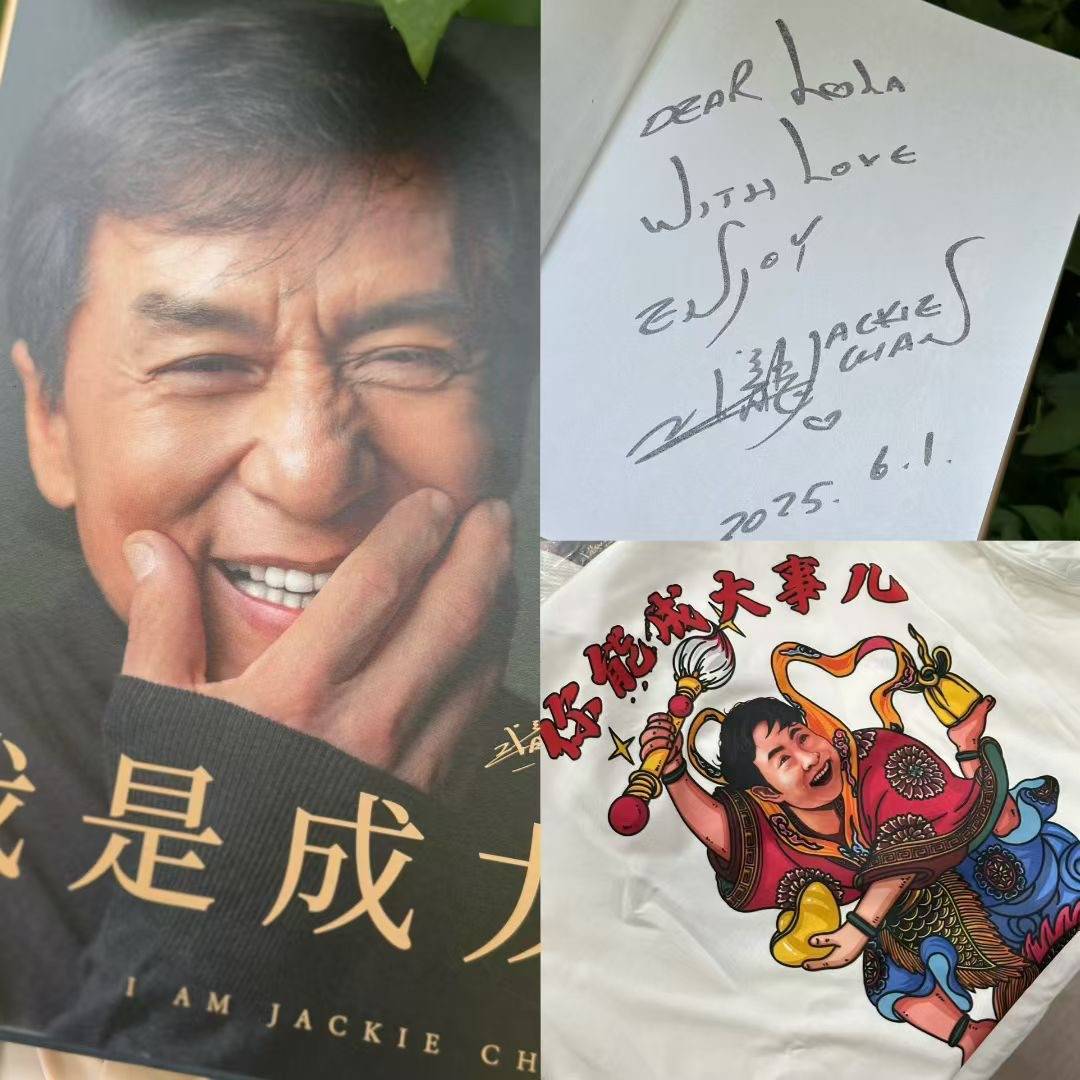 我是成
I AM JACKIE CH
DEAR LOLA
WITH LOVE
ENJOY
JACKIE
CHAN
2025. 6.1.
你能成大事儿